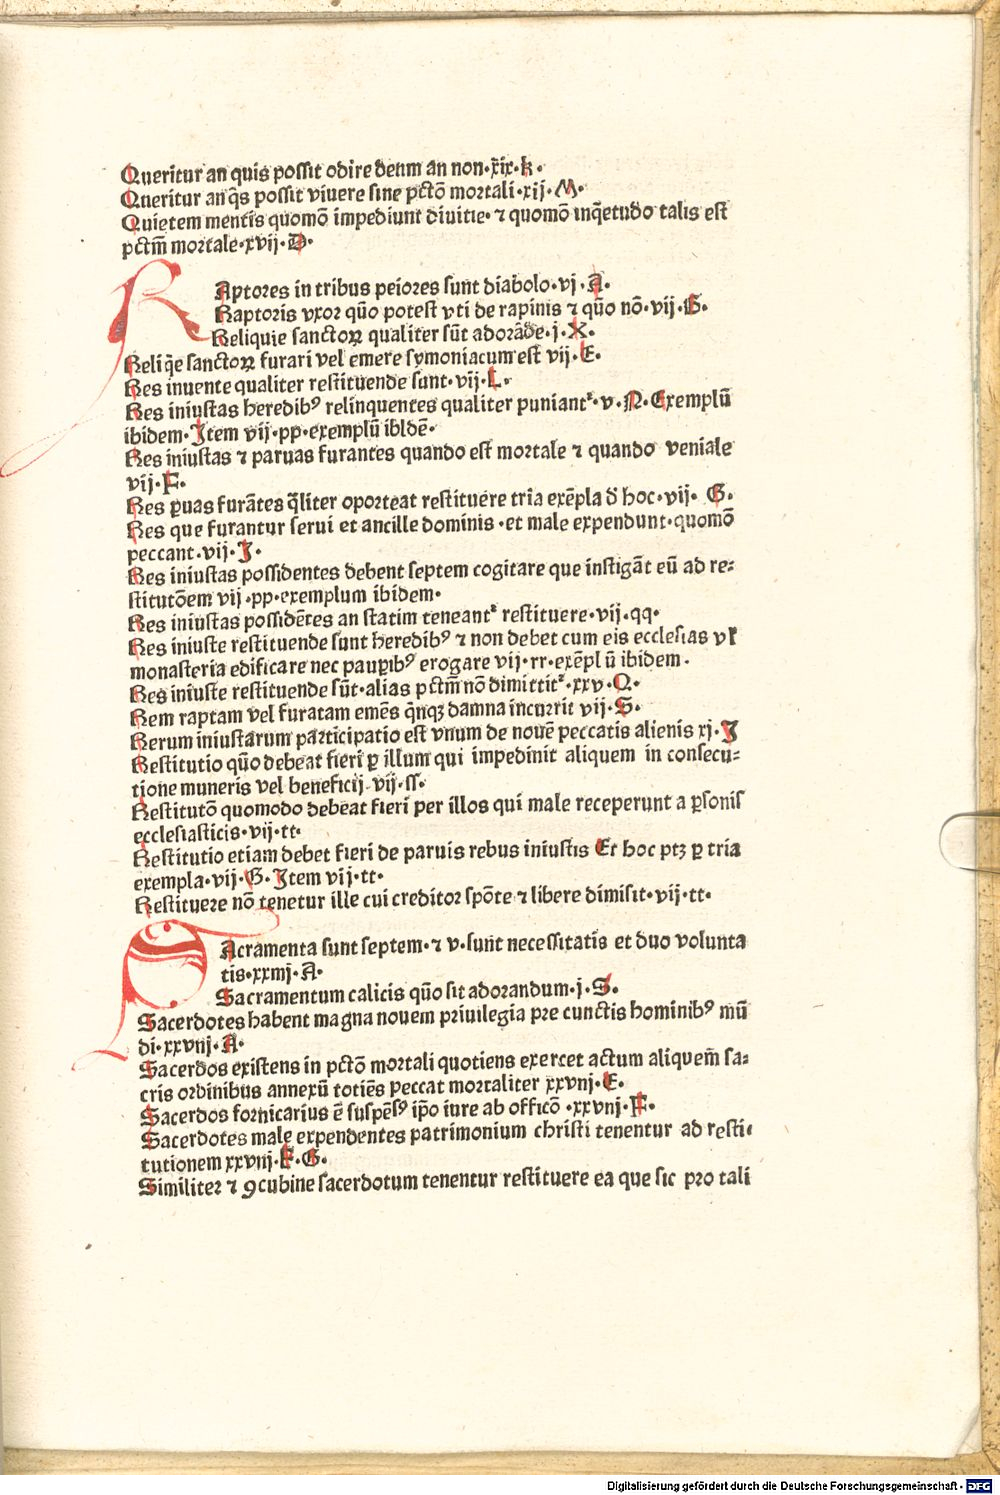 Queritur an quis possit odire deum an non·xix·k·
Queritur an q̄s possit viuere sine pctō mortali·xij·M·
Quietem mentis quomō impediunt diuitie·⁊ quomō inq̄etudo talis est
pctm̄ mortale·xvij·D·
Raptores in tribus peiores sunt diabolo·vj·A·
Raptoris vxor quō potest vti de rapinis ⁊ quō nō·vij·G·
Reliquie sanctoꝝ qualiter sūt adorāde·j·X·
Reliq̄e sanctoꝝ furari vel emere symoniacum est vij·E·
Res inuente qualiter restituende sunt·vij·L·
Res iniustas heredibꝰ relinquentes qualiter puniantᷣ·v·N·Exemplū
ibidem·Item vij·pp·exemplū ibidē·
Res iniustas ⁊ paruas furantes quando est mortale ⁊ quando veniale
vij·F·
Res ꝑuas furātes q̄liter oporteat restituere tria exēpla d̄ hoc·vij·G·
Res que furantur serui et ancille dominis·et male expendunt·quomō
peccant·vij·I·
Res iniustas possidentes debent septem cogitare que instigāt eū ad re⸗
stitutōem vij·pp·exemplum ibidem·
Res iniustas possidētes an statim teneantᷣ restituere·vij·qq·
Res iniuste restituende sunt heredibꝰ ⁊ non debet cum eis ecclesias vl̄
monasteria edificare nec pauꝑibꝰ erogare vij·rr·exēplū ibidem·
Res iniuste restituende sūt·alias pctm̄ nō dimittitᷣ·xxv·Q·
Rem raptam vel furatam emēs q̄nqꝫ damna incurrit vij·S·
Rerum iniustarum participatio est vnum de nouē peccatis alienis xj·I
Restitutio quō debeat fieri ꝑ illum qui impediuit aliquem in consecu⸗
tione muneris vel beneficij·vij·ss·
Restitutō quomodo debeat fieri per illos qui male receperunt a ꝑsonis
ecclesiasticis·vij·tt·
Restitutio etiam debet fieri de paruis rebus iniustis Et hoc ptꝫ ꝑ tria
exempla·vij·G·Item vij·tt·
Restituere nō tenetur ille cui creditor spōte ⁊ libere dimisit·vij·tt·
Sacramenta sunt septem·⁊ v·sunt necessitatis et duo volunta
tis·xxiiij·A·
Sacramentum calicis quō sit adorandum·j·S·
Sacerdotes habent magna nouem priuilegia pre cunctis hominibꝰ mū
di·xxviij·A·
Sacerdos existens in pctō mortali quotiens exercet actum aliquem̄ sa⸗
cris ordinibus annexū totiēs peccat mortaliter xxviij·E·
Sacerdos fornicarius ē suspēsꝰ ip̄o iure ab officō·xxviij·F·
Sacerdotes male expendentes patrimonium christi tenentur ad resti⸗
tutionem xxviij·F·G·
Similiter ⁊ ꝯcubine sacerdotum tenentur restituere ea que sic pro tali
Digitalisierung gefördert durch die Deutsche Forschungsgemeinschaft - DFG